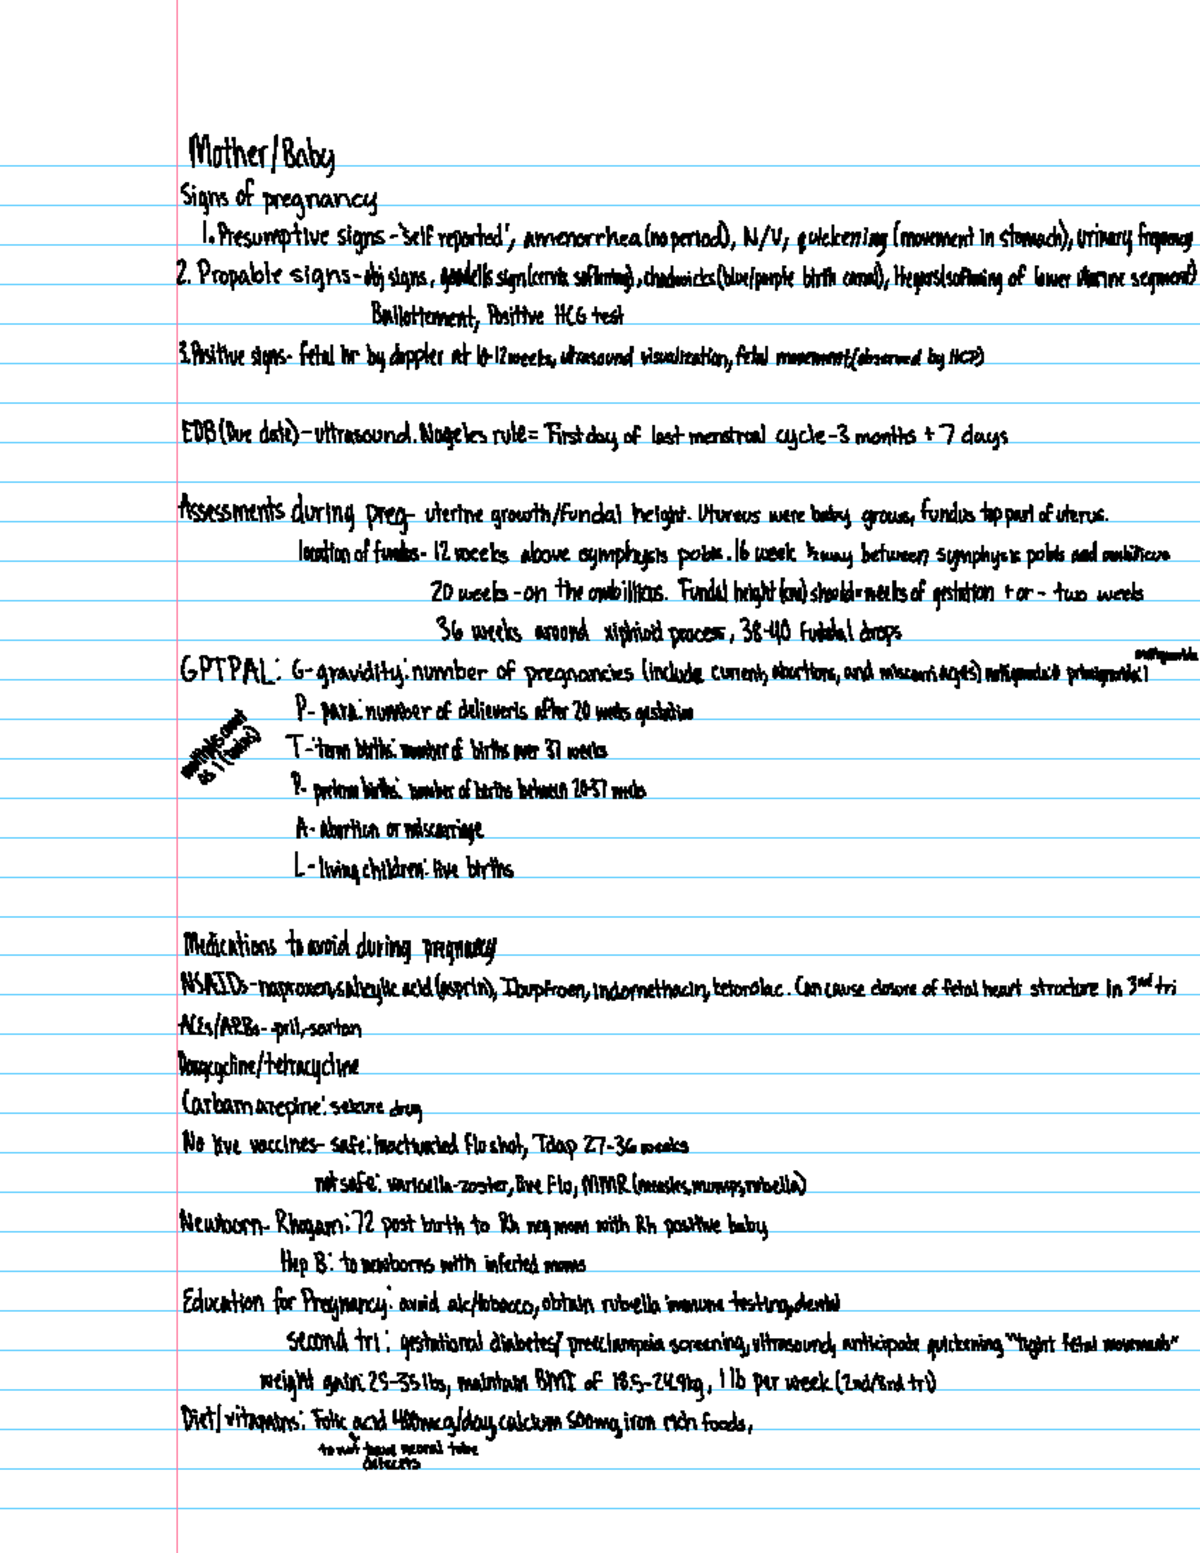 Mother/Baby
Signs of pregnancy
1. Presumptive signs - "self reported", amenorrhea (no period), N/V, quickening (movement in stomach), urinary frequency
2. Propable signs - obj signs, goodells sign (cervix softening), chadwicks (blue/purple birth canal), Hegars (softning of lower uterine segment)
Ballottement, Positive HCG test
3. Positive signs - fetal hr by doppler at 10-12 weeks, ultrasound visualization, fetal movement (observed by HCP)
EDB (Due date) - ultrasound. Nageles rule = First day of last menstrual cycle - 3 months + 7 days
Assessments during preg - uterine growth/fundal height. Utureus were baby grows, fundus top part of uterus.
location of fundus - 12 weeks above symphysis pubis. 16 week ½ way between symphysis pubis and umbilicus
20 weeks - on the umbilicus. Fundal height (cm) should = weeks of gestation + or - two weeks
36 weeks around xiphoid process, 38-40 fundal drops
GPTPAL: G - gravidity: number of pregnancies (include current, abortions, and miscarriages)
P - para: number of delieveris after 20 weeks gestation
multiples count as 1 (twins)
T - term births: number of births over 37 weeks
P - preterm births: number of births between 20-37 weeks
A - abortion or miscarriage
L - living children: live births
Medications to avoid during pregnancy
NSAIDs - naproxen, salicylic acid (asprin), Ibupfroen, indomethacin, ketorolac. Can cause closure of fetal heart structure in 3rd tri
ACEs/ARBs - -pril, -sartan
Doxycycline/tetracycline
Carbamazepine: seizure drug
No live vaccines - safe: inactivated flu shot, Tdap 27-36 weeks
not safe: varicella-zoster, live Flu, MMR (measles, mumps, rubella)
Newborn - Rhogam: 72 post birth to Rh neg mom with Rh positive baby
Hep B: to newborns with infected moms
Education for Pregnancy: avoid alc/tobacco, obtain rubella immune testing, dental
second tri: gestational diabetes/ preeclampsia screening, ultrasound, anticipate quickening "light fetal movement"
weight gain: 25-35 lbs, maintain BMI of 18.5-24.9kg, 1 lb per week (2nd/3rd tri)
Diet/vitamins: Folic acid 400mcg/day, calcium 500mg, iron rich foods,
to not have neural tube
defects